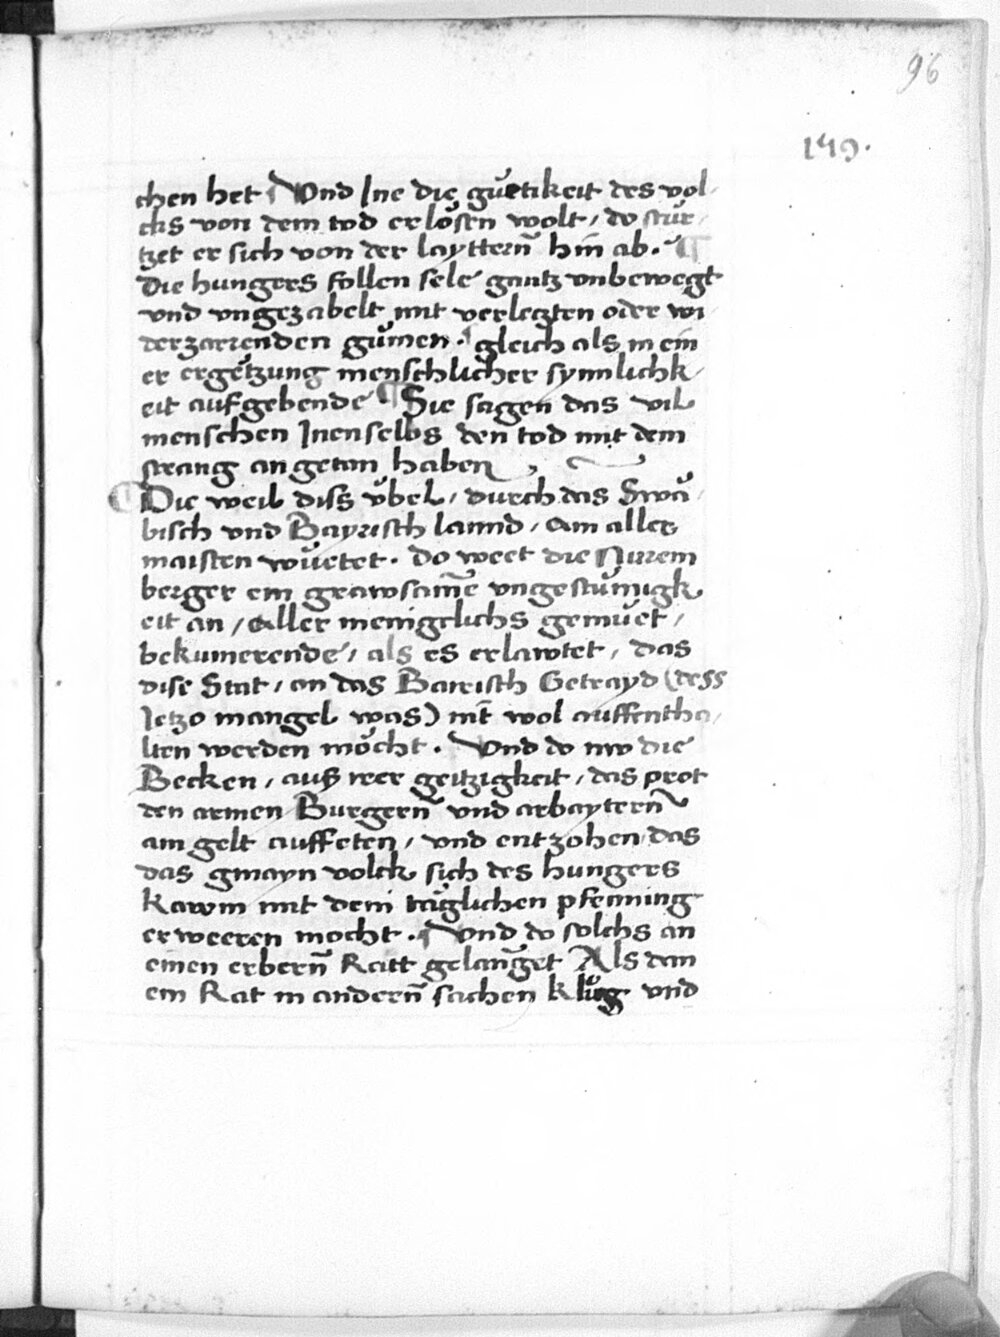 96
149.
chen het ¶ Vnd Ine die guͤetikeit des vol/
cks von dem tod erlösen wolt / do stür/
tzet er sich von der layttern̄ hin ab. ¶
Die hungers follen sele gantz vnbewegt
vnd vngezabelt mit verletzten oder wi
derzarrenden gůmen. ¶ gleich als in ein
er ergetzung menschlicher synnlichk/
eit aufgebende ¶ Sie sagen das vil
menschen Inenselbs den tod mit dem
strang angetan haben
¶ Die weil diss übel / durch das Swä/
bisch vnd Bayrisch lannd / am aller
maisten wüetet. do weet die Nurem
berger ein grawsam̄e vngestümigk
eit an / Aller menigelichs gemüet /
bekumerende / als es erlawtet / das
dise Stat / an das Bareisch Getrayd (dess
Jetzo mangel was) nit wol auffentha/
lten werden möcht. Vnd do nw die
Becken / auß irer geitzigkeit / das prot
den armen Burgern̄ vnd arbaytern̄
am gelt auffeten / vnd entzohen / das
das gmayn volck sich des hungers
kawm mit dem täglichen pfenning
erweeren mocht. ¶ Vnd do solchs an
einen erbern̄ Ratt gelanget Als dan
ein Rat in andern̄ sachen klůg vnd